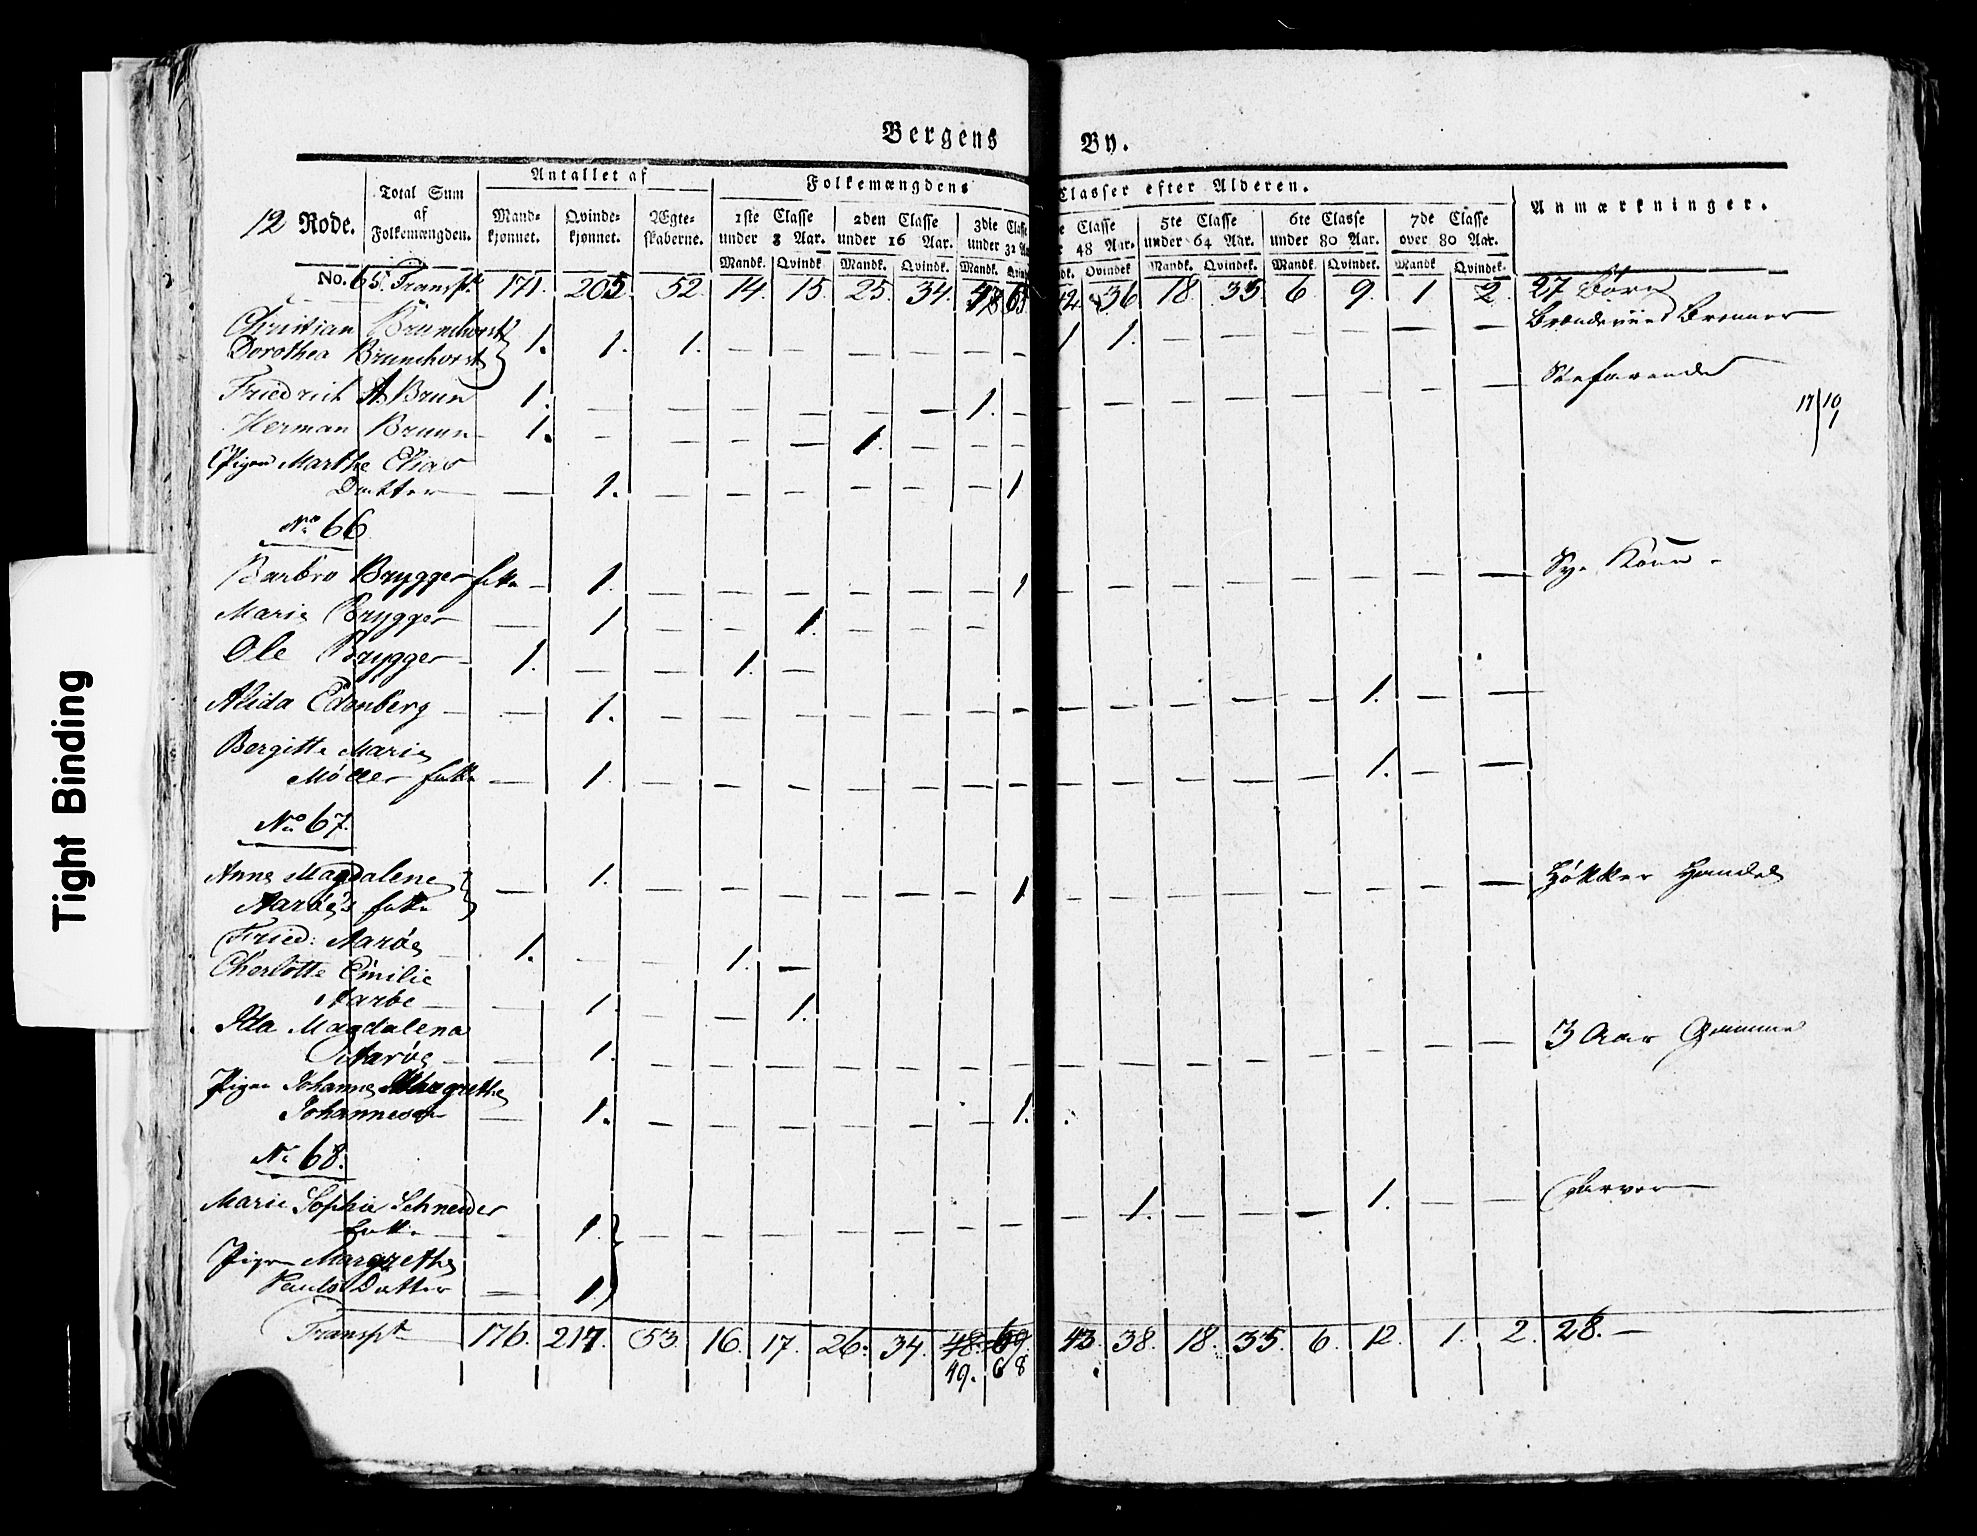 Bergens By.
Antallet af
Folkemængdens Classer efter Alderen.
12 Rode.
Total Sum af Folkemængden.
Mandkjønnet. Qvindekjønnet. Ægteskaberne.
1ste Classe under 8 Aar. 2den Classe under 16 Aar. 3die Classe under 32 Aar 48 Aar. 5te Classe under 64 Aar. 6te Classe under 80 Aar. 7de Classe over 80 Aar.
Anmærkninger.
Mandk. Qvindk. Mandk. Qvindk. Mandk. Qvindk. Mandk. Qvindek. Mandk. Qvindek. Mandk Qvindek.
No. 65. Transpt 171. 205 52. 14. 15. 25. 34. 65 42. 36 18. 35 6. 9. 1 2 27 Børn
Christian Brunchorst
Dorothea Brunchorst 1. 1. 1. — — — — — — 1 1. — — — Brændeviins Brenner
Friedrich A. Brun 1. — — — — — — 1. — — — — — — — Søefarende
17/10
Herman Bruun 1. — — — — 1. — — —
Pigen Marthe Elias
Datter — 1. — — — — — — 1
No 66.
Barbro Brygger — 1. — — — — — — 1 — — — — — — — — Sye Kone
Marie Brygger — 1 — — 1. — — —
Ole Brygger 1. — — 1. —
Alida Edenberg — 1. — — — — — — — — — — — — 1. — —
Bergitte Marie
Møller — 1. — — — — — — — — — — — — 1. — —
No 67.
Anne Magdalene
Aarøe's — 1. — — — — — — 1 — — — — — — — — Høkker Handel
Fried: Aarøe 1. — — 1. —
Charlotte Emilie
Aarøe — 1. — — 1.
Ida Magdalena
Aarøe — 1. — — — — — — — — — — — — — — — 3 Aar Gammel
Pigen Johanne Margrethe
Johannesen — 1. — — — — — — 1.
No 68.
Marie Sophie Schneider
— 1. — — — — — — — — 1. — — — 1. — — Farver
Pigen Margrethe
Pauls Datter — 1
Transpt 176. 217. 53. 16. 17. 26. 34. 48. 69. 43. 38. 18. 35. 6. 12. 1. 2. 28. —
49. 68
Tight Binding